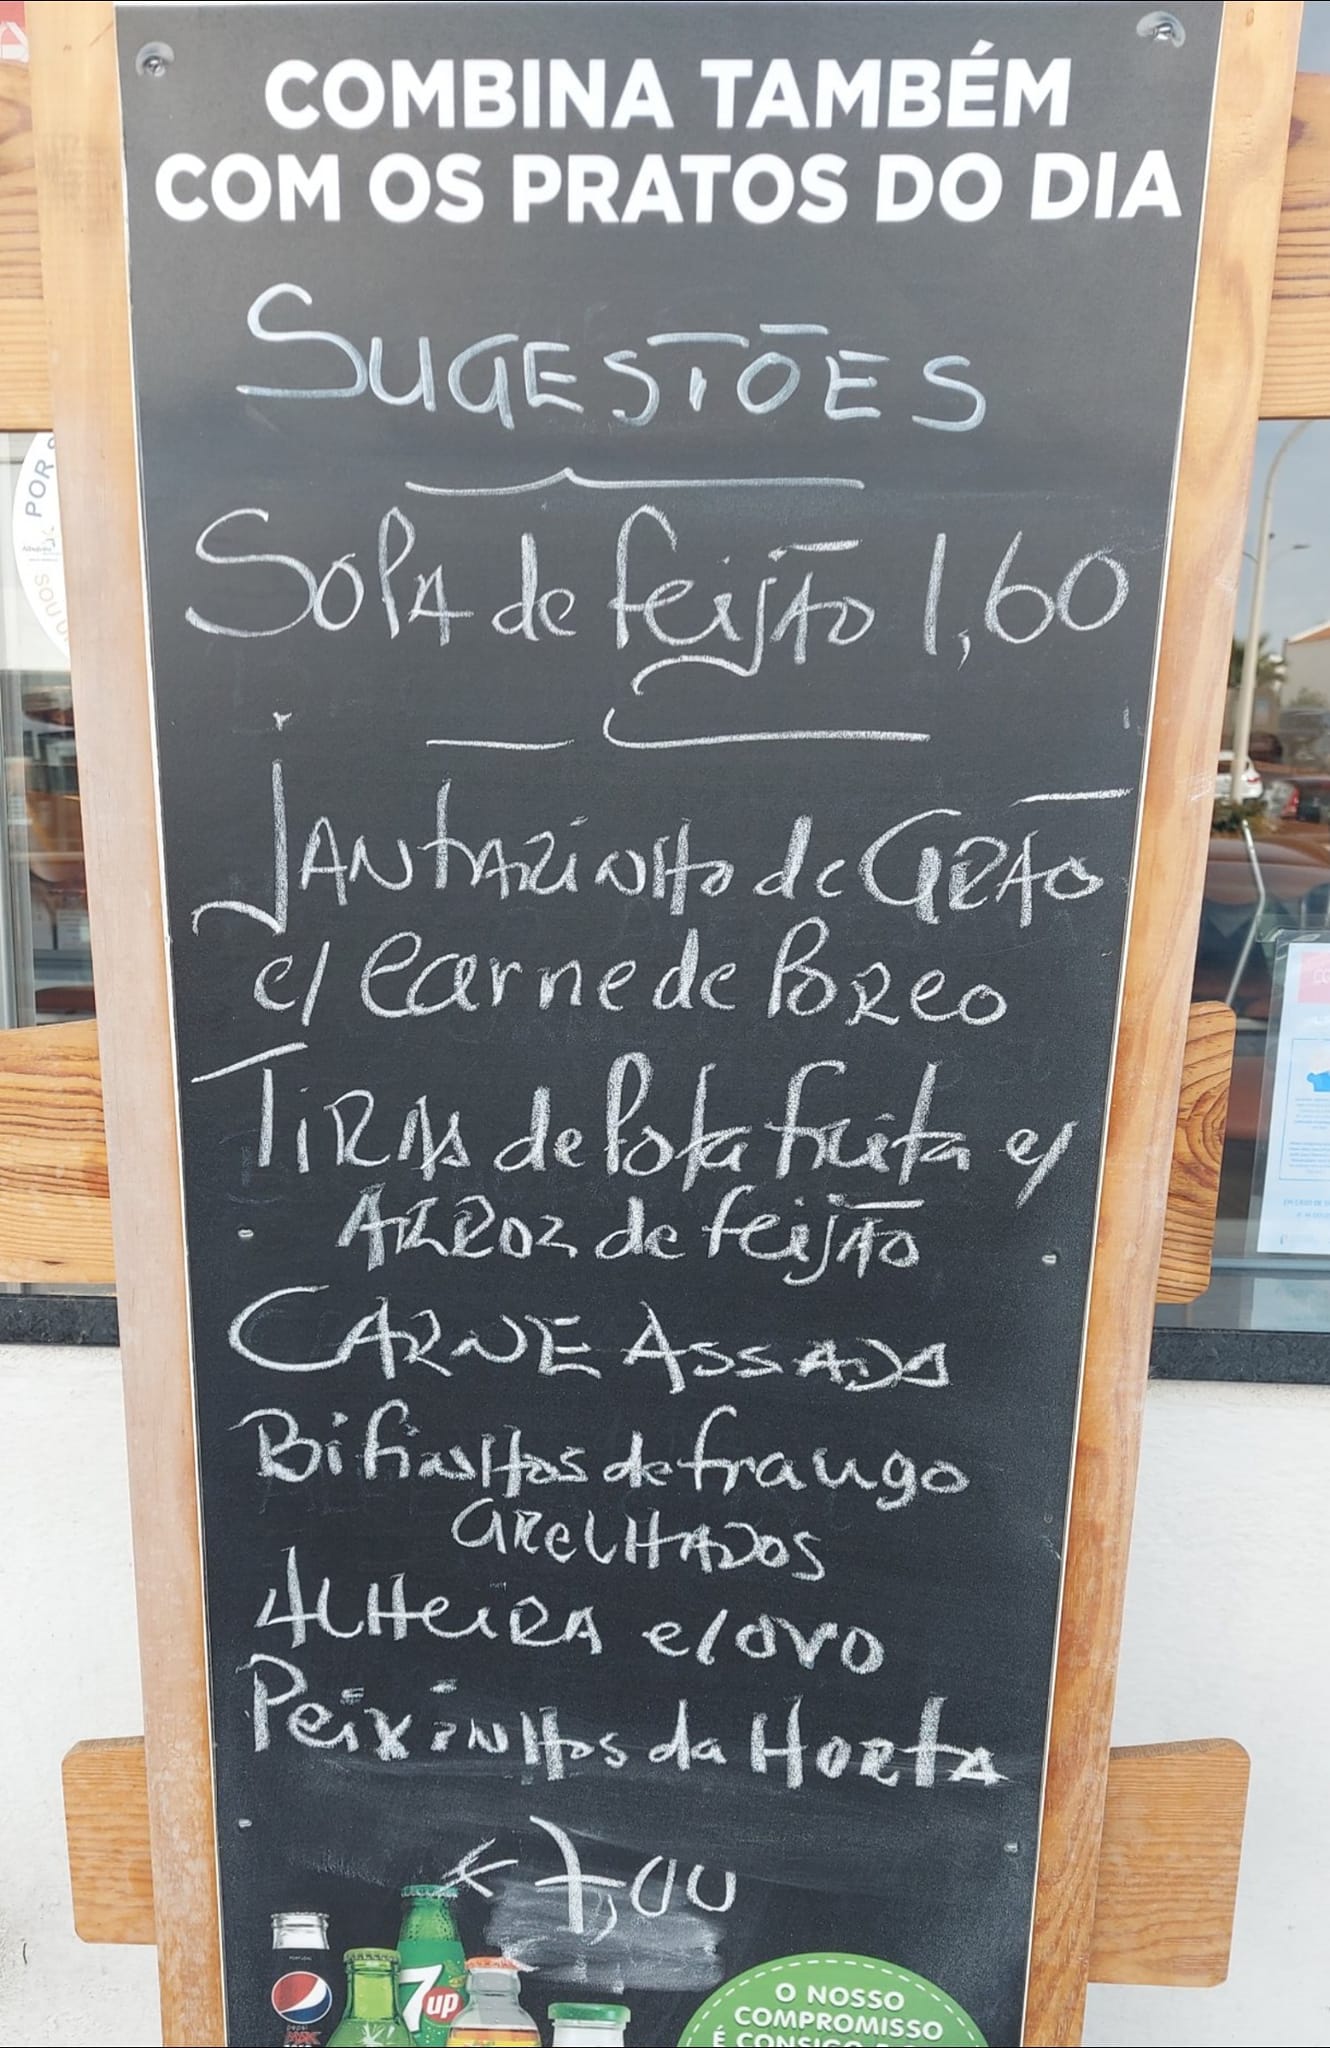 COMBINA TAMBÉM
COM OS PRATOS DO DIA
SUGESTÕES
SOPA de feijão 1,60
JANTARINHO de GRÃO
c/ carne de Porco
TIRAS de Pota frita c/
ARROZ de feijão
CARNE ASSADA
Bifinhos de frango
GRELHADOS
ALHEIRA c/ovo
Peixinhos da HORTA
€ 7,00
PORTUGAL
pepsi
MAX
7up
O NOSSO
COMPROMISSO
É CONSIGO
POR